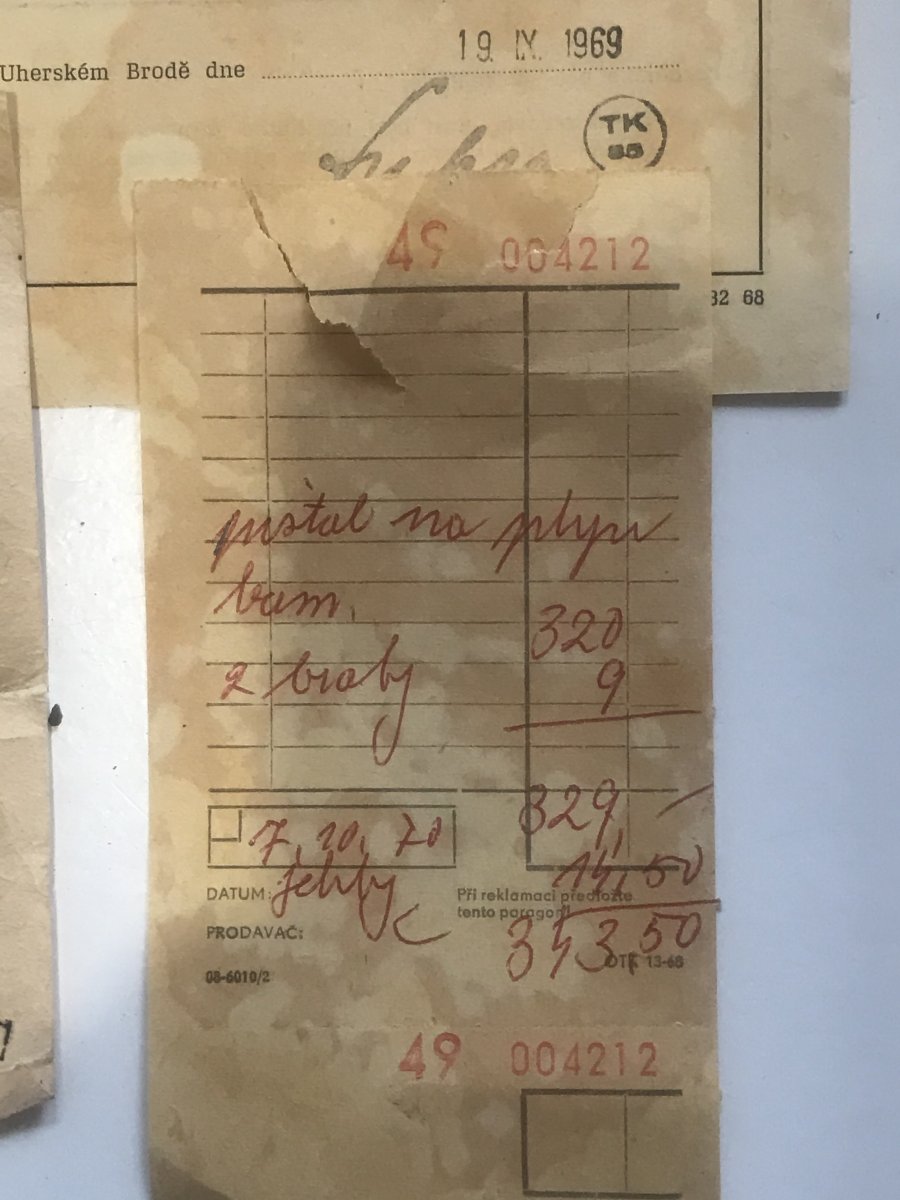 Uherském Brodě dne 19. IX. 1969
TK
49 004212
32 68
pištol na plyn
bam. 320
2 braby 9
329,
7. 10. 70
14,50
DATUM: jehly
Při reklamaci předložte
tento paragon!
PRODAVAČ:
343,50
08-6010/2
OTK 13-68
49 004212